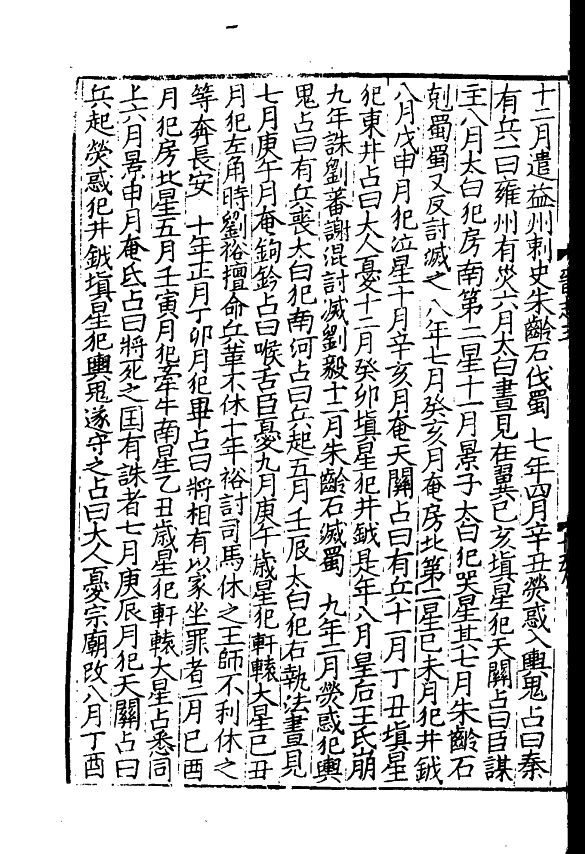 十二月遣益州刺史朱齡石伐蜀　七年四月辛丑熒惑入輿鬼占曰秦
有兵一曰雍州有災六月太白晝見在翼己亥塡星犯天關占曰臣謀
主八月太白犯房南第二星十一月景子太白犯哭星其七月朱齡石
剋蜀蜀又反討滅之　八年七月癸亥月奄房北第二星己未月犯井鉞
八月戊申月犯泣星十月辛亥月奄天關占曰有兵十一月丁丑塡星
犯東井占曰大人憂十二月癸卯塡星犯井鉞是年八月皇后王氏崩
九年誅劉蕃謝混討滅劉毅十二月朱齡石滅蜀　九年二月熒惑犯輿
鬼占曰有兵喪太白犯南河占曰兵起五月壬辰太白犯右執法晝見
七月庚午月奄鉤鈐占曰喉舌臣憂九月庚午歲星犯軒轅大星己丑
月犯左角時劉裕擅命兵革不休十年裕討司馬休之王師不利休之
等奔長安　十年正月丁卯月犯畢占曰將相有以家坐罪者二月己酉
月犯房北星五月壬寅月犯牽牛南星乙丑歲星犯軒轅大星占悉同
上六月景申月奄氐占曰將死之国有誅者七月庚辰月犯天關占曰
兵起熒惑犯井鉞塡星犯輿鬼遂守之占曰大人憂宗廟改八月丁酉